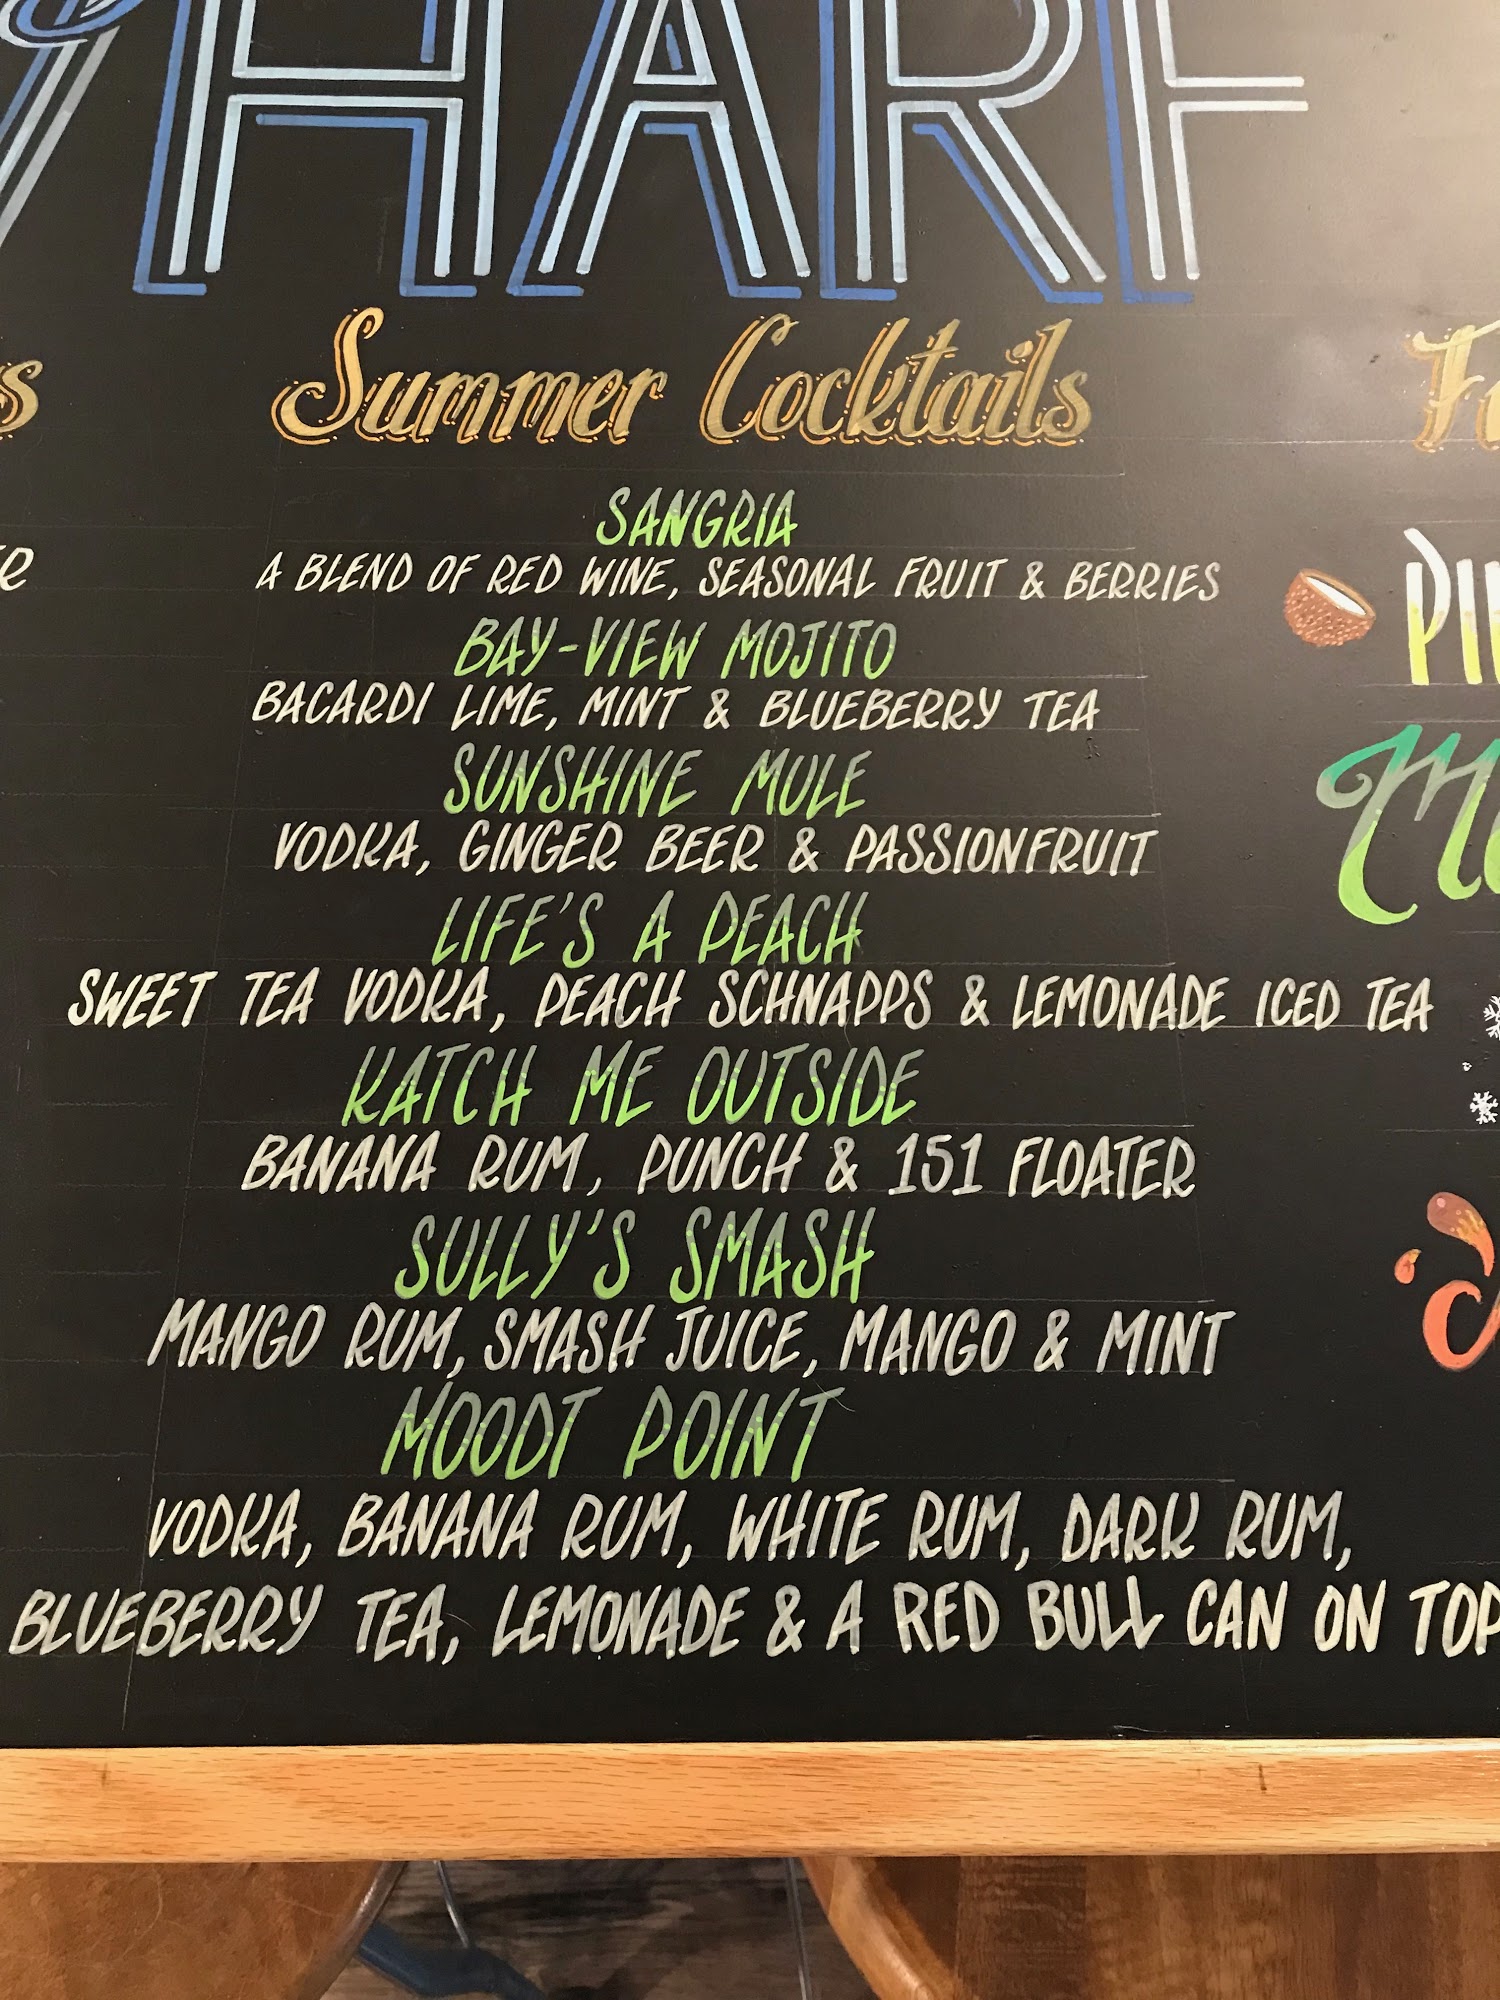 WHARF
Summer Cocktails
SANGRIA
A BLEND OF RED WINE, SEASONAL FRUIT & BERRIES
BAY-VIEW MOJITO
BACARDI LIME, MINT & BLUEBERRY TEA
SUNSHINE MULE
VODKA, GINGER BEER & PASSIONFRUIT
LIFE'S A PEACH
SWEET TEA VODKA, PEACH SCHNAPPS & LEMONADE ICED TEA
KATCH ME OUTSIDE
BANANA RUM, PUNCH & 151 FLOATER
SULLY'S SMASH
MANGO RUM, SMASH JUICE, MANGO & MINT
MOODT POINT
VODKA, BANANA RUM, WHITE RUM, DARK RUM,
BLUEBERRY TEA, LEMONADE & A RED BULL CAN ON TOP